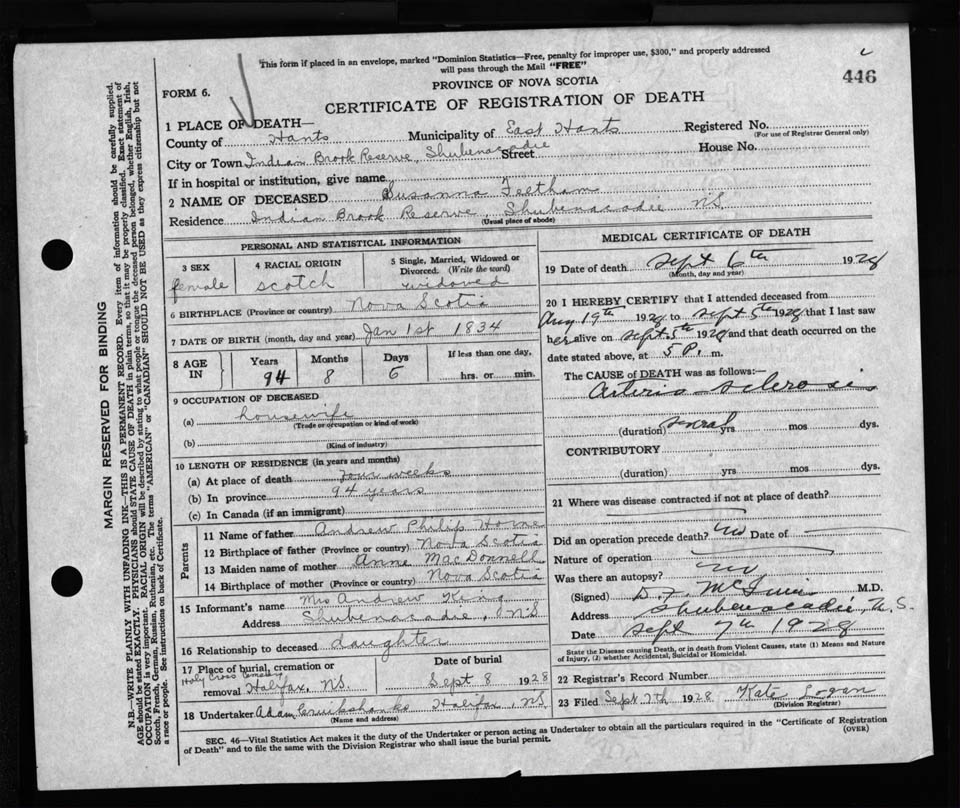 This form if placed in an envelope, marked "Dominion Statistics—Free, penalty for improper use, $300," and properly addressed
will pass through the Mail "FREE"
446
PROVINCE OF NOVA SCOTIA
FORM 6.
CERTIFICATE OF REGISTRATION OF DEATH
1 PLACE OF DEATH—
County of Hants Municipality of East Hants Registered No.
(For use of Registrar General only)
City or Town Indian Brook Reserve, Shubenacadie Street House No.
If in hospital or institution, give name
2 NAME OF DECEASED Susanna Feetham
Residence Indian Brook Reserve, Shubenacadie NS
(Usual place of abode)
PERSONAL AND STATISTICAL INFORMATION
3 SEX
female
4 RACIAL ORIGIN
scotch
5 Single, Married, Widowed or
Divorced. (Write the word)
widowed
6 BIRTHPLACE (Province or country) Nova Scotia
7 DATE OF BIRTH (month, day and year) Jan 1st 1834
8 AGE IN
Years 94
Months 8
Days 6
If less than one day,
hrs. or min.
9 OCCUPATION OF DECEASED
(a) housewife
(Trade or occupation or kind of work)
(b)
(Kind of industry)
10 LENGTH OF RESIDENCE (in years and months)
(a) At place of death four weeks
(b) In province 94 years
(c) In Canada (if an immigrant)
Parents
11 Name of father Andrew Philip Horne
12 Birthplace of father (Province or country) Nova Scotia
13 Maiden name of mother Anne MacDonnell
14 Birthplace of mother (Province or country) Nova Scotia
15 Informant's name Mrs Andrew King
Address Shubenacadie, NS
16 Relationship to deceased daughter
17 Place of burial, cremation or
Holy Cross Cemetery
removal Halifax, NS.
Date of burial
Sept 8 1928
18 Undertaker Adam Cruikshanks Halifax, NS
(Name and address)
MEDICAL CERTIFICATE OF DEATH
19 Date of death Sept 6th 1928
(Month, day and year)
20 I HEREBY CERTIFY that I attended deceased from
Aug 19th 1928 to Sept 5th 1928 that I last saw
her alive on Sept. 5th 1928 and that death occurred on the
date stated above, at 5 P. m.
The CAUSE of DEATH was as follows:—
Arterio sclerosis
(duration) several yrs mos dys.
CONTRIBUTORY
(duration) yrs. mos. dys.
21 Where was disease contracted if not at place of death?
Did an operation precede death? no Date of
Nature of operation
Was there an autopsy? no
(Signed) D.F. M.D.
Address Shubenacadie, N.S.
Date Sept 7th 1928
State the Disease causing Death, or in death from Violent Causes, state (1) Means and Nature
of Injury, (2) whether Accidental, Suicidal or Homicidal.
22 Registrar's Record Number
23 Filed Sept 7th 1928 Kate Logan
(Division Registrar)
SEC. 46—Vital Statistics Act makes it the duty of the Undertaker or person acting as Undertaker to obtain all the particulars required in the "Certificate of Registration
of Death" and to file the same with the Division Registrar who shall issue the burial permit.
(OVER)
MARGIN RESERVED FOR BINDING
N.B.—WRITE PLAINLY WITH UNFADING INK—THIS IS A PERMANENT RECORD. Every item of information should be carefully supplied.
AGE should be stated EXACTLY. PHYSICIANS should STATE CAUSE OF DEATH in plain terms, so that it may be properly classified. Exact statement of
OCCUPATION is very important. RACIAL ORIGIN will be described by stating to what people or tongue the deceased person belonged, whether English, Irish,
Scotch, French, German, Russian, Ruthenian, etc. The terms "AMERICAN" or "CANADIAN" SHOULD NOT BE USED as they express citizenship but not
a race or people. See instructions on back of Certificate.